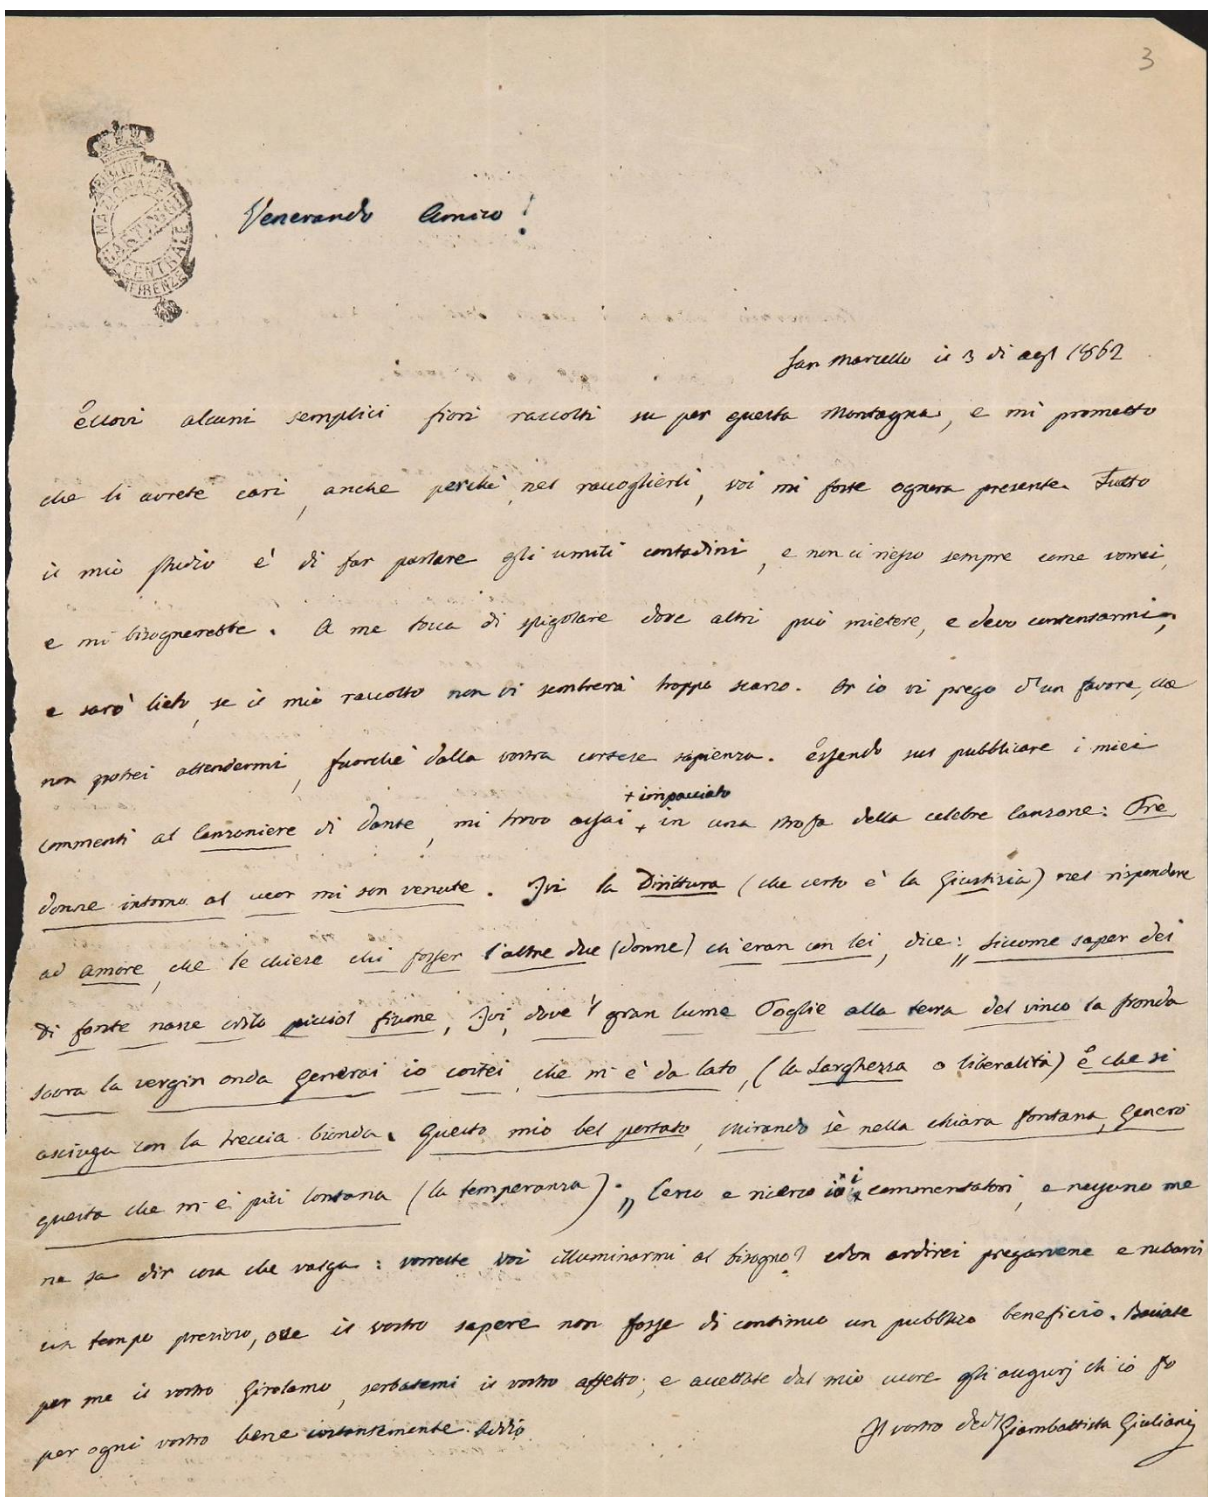 3
BIBLIOTECA NAZIONALE CENTRALE FIRENZE
Venerando Amico!
San Marcello il 3 di agt 1862
Eccovi alcuni semplici fiori raccolti su per questa Montagna, e mi prometto
che li avrete cari, anche perchè, nel raccoglierli, voi mi foste ognora presente. Tutto
il mio studio è di far parlare gli umili contadini, e non ci riesco sempre come vorrei,
e mi bisognerebbe. A me tocca di spigolare dove altri può mietere, e devo contentarmi;
e sarò lieto, se il mio raccolto non vi sembrerà troppo scarso. Or io vi prego d'un favore, che
non potrei attendermi, fuorchè dalla vostra cortese sapienza. Essendo sul pubblicare i miei
+ impacciato
commenti al Canzoniere di Dante, mi trovo assai + in una strofa della celebre Canzone: Tre
donne intorno al cuor mi son venute. Ivi la Dirittura (che certo è la Giustizia) nel rispondere
ad Amore, che le chiese chi fosser l'altre due (donne) ch'eran con lei, dice: „ Siccome saper dei
Di fonte nasce picciol fiume, Ivi, dove 'l gran lume Toglie alla terra del vinco la fronda
sovra la vergin onda Generai io costei, che m'è da lato, (la Larghezza o liberalità) E che si
asciuga con la treccia bionda. Questo mio bel portato, mirando sè nella chiara fontana, Generò
questa che m'è più lontana (la temperanza). „ Cerco e ricerco i commentatori, e nessuno me
ne sa dir cosa che valga: vorreste voi illuminarmi al bisogno? Non ardirei pregarvene e rubarvi
un tempo prezioso, ove il vostro sapere non fosse di continuo un pubblico beneficio. Baciate
per me il vostro Girolamo, serbatemi il vostro affetto, e accettate dal mio cuore gli augurj ch'io fo
per ogni vostro bene costantemente. Addio
Il vostro Giambattista Giuliani